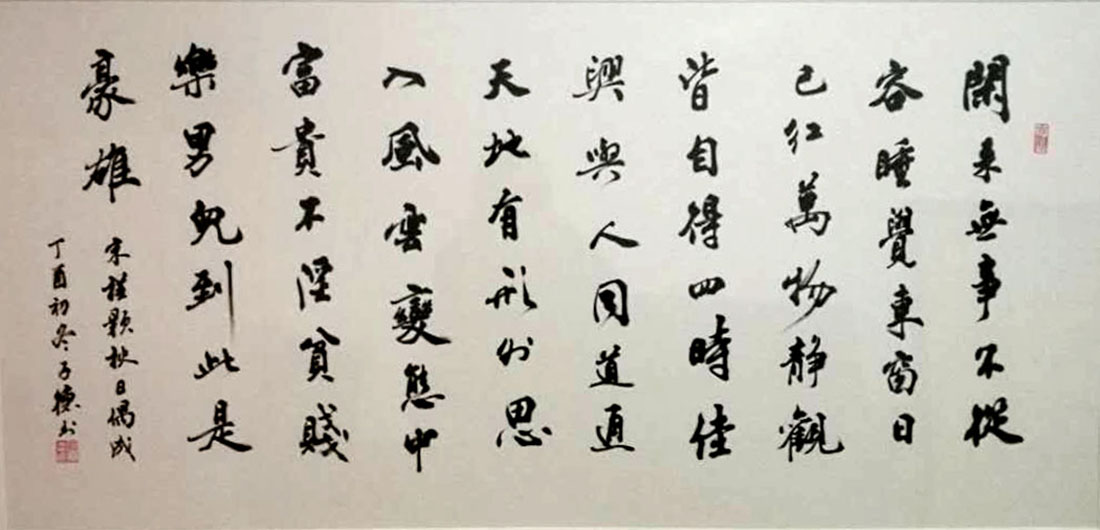 閑来無事不從
容睡覺東窗日
已紅萬物静觀
皆自得四時佳
興與人同道通
天地有形外思
入風雲變態中
富貴不淫貧賤
樂男兒到此是
豪雄
宋程顥秋日偶成
丁酉初冬子德书